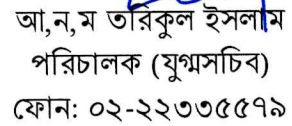 আ,ন,ম তরিকুল ইসলাম
পরিচালক (যুগ্মসচিব)
ফোন: ০২-২২৩৩৫৫৭৯